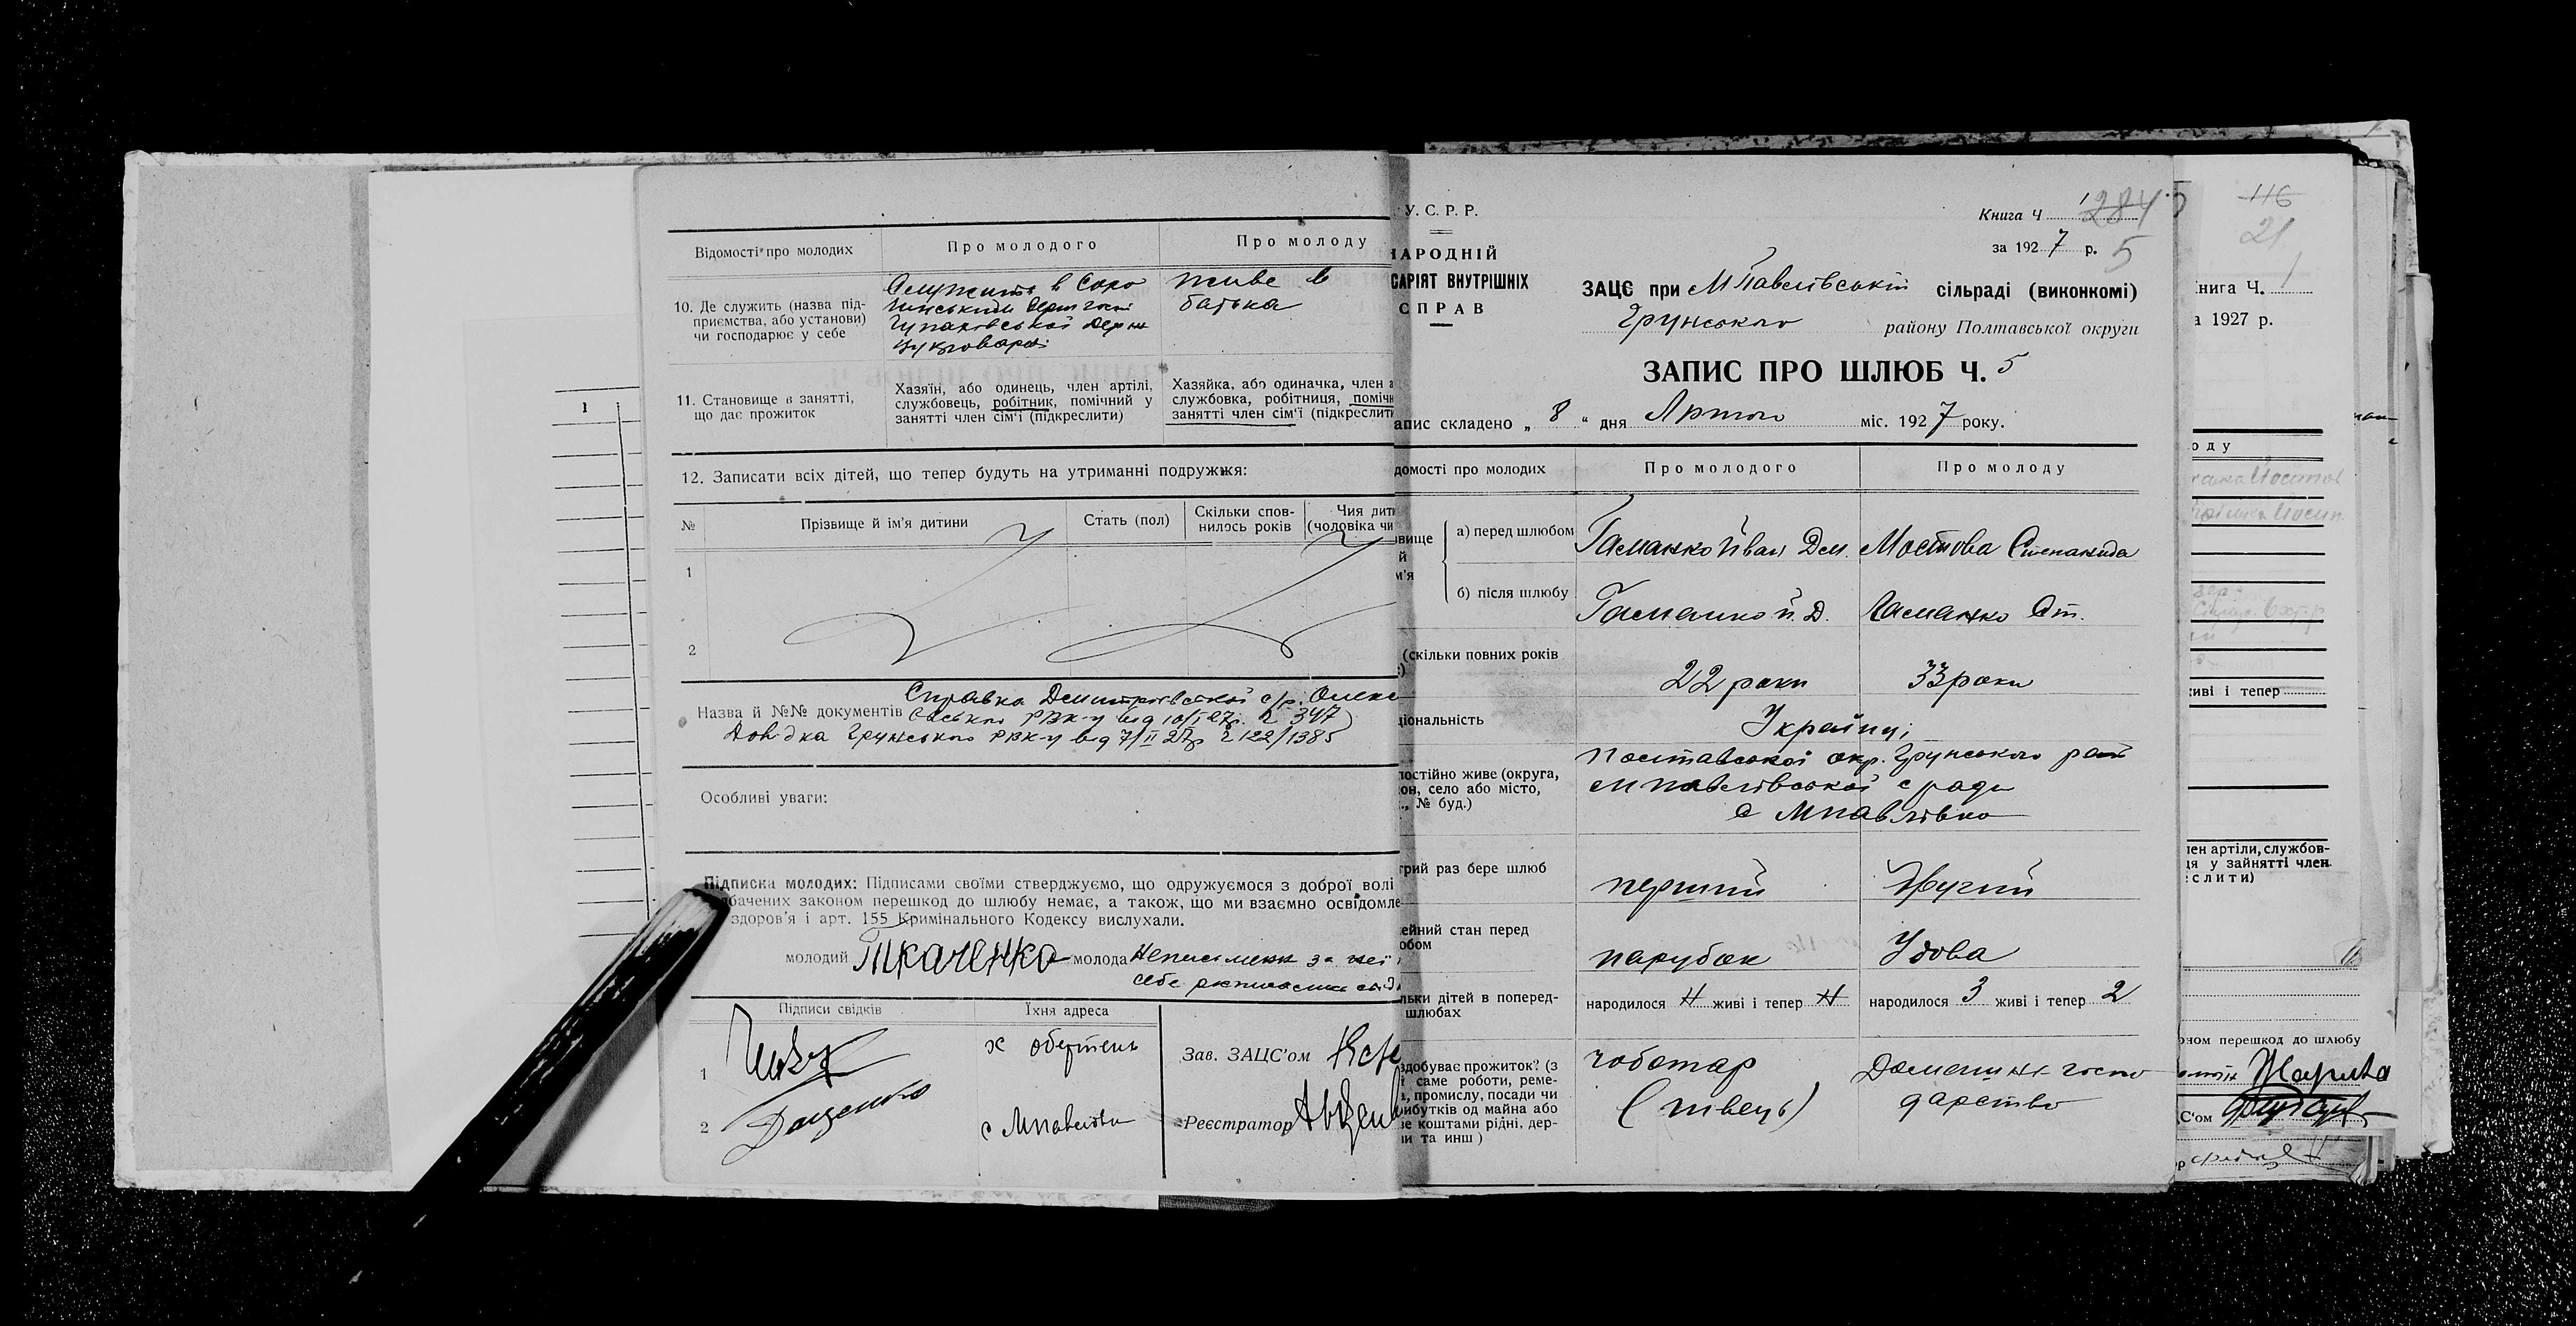 Відомості про молодих
Про молодого
Про молоду
10. Де служить (назва під-
приємства, або установи)
чи господарює у себе
Служить в Соро
чинський Держ
Чупаховської Держ
цукроварні
живе в
батька
11. Становище в занятті,
що дає прожиток
Хазяїн, або одинець, член артілі,
службовець, робітник, помічний у
занятті член сім'ї (підкреслити)
Хазяйка, або одиначка, член а
службовка, робітниця, помічн
занятті член сім'ї (підкреслити
12. Записати всіх дітей, що тепер будуть на утриманні подружжя:
№
Прізвище й ім'я дитини
Стать (пол)
Скільки спов-
нилось років
Чия дити
(чоловіка чи
1
2
Назва й №№ документів
Справка Дмитрівської с/р.
РВК-у від 10/I 27р. Ч 347
Довідка Грунського РВК-у від 7/II 27р Ч 122/1385
Особливі уваги:
Підписка молодих: Підписами своїми стверджуємо, що одружуємося з доброї волі
бачених законом перешкод до шлюбу немає, а також, що ми взаємно освідомле
здоров'я і арт. 155 Кримінального Кодексу вислухали.
молодий Ткаченко молода Неписьменн за неї
себе
Підписи свідків
Їхня адреса
1
х Обертень
2 Доценко
с Мпавлівка
Зав. ЗАЦС'ом
Реєстратор
У. С. Р. Р.
НАРОДНІЙ
САРІЯТ ВНУТРІШНІХ
СПРАВ
Книга Ч 1
284
5
за 1927 р.
5
ЗАЦС при МПавлівській сільраді (виконкомі)
Грунського району Полтавської округи
ЗАПИС ПРО ШЛЮБ Ч. 5
апис складено „ 8 “ дня Лютого міс. 1927 року.
домості про молодих
Про молодого
Про молоду
вище
й
м'я
а) перед шлюбом
Гаманко Иван Дем.
Мостова Степанида
б) після шлюбу
Гаманко И. Д.
Гаманко Ст.
(скільки повних років
22 роки
33 роки
ціональність
Українці
постійно живе (округа,
он, село або місто,
., № буд.)
Полтавської окр. Грунського рай
мпавлівської с ради
с Мпавлівка
трий раз бере шлюб
перший
Другий
ейний стан перед
обом
парубок
Удова
льки дітей в поперед-
шлюбах
народилося Н живі і тепер Н
народилося 3 живі і тепер 2
здобуває прожиток? (з
і саме роботи, реме-
а, промислу, посади чи
ибутків од майна або
не коштами рідні, дер-
и та инш)
чоботар
(швець)
Домашн госпо
дарство
116
21
нига Ч. 1
а 1927 р.
оду
иві і тепер
лен артіли, службов-
ця у зайнятті член
слити)
оном перешкод до шлюбу
С'ом